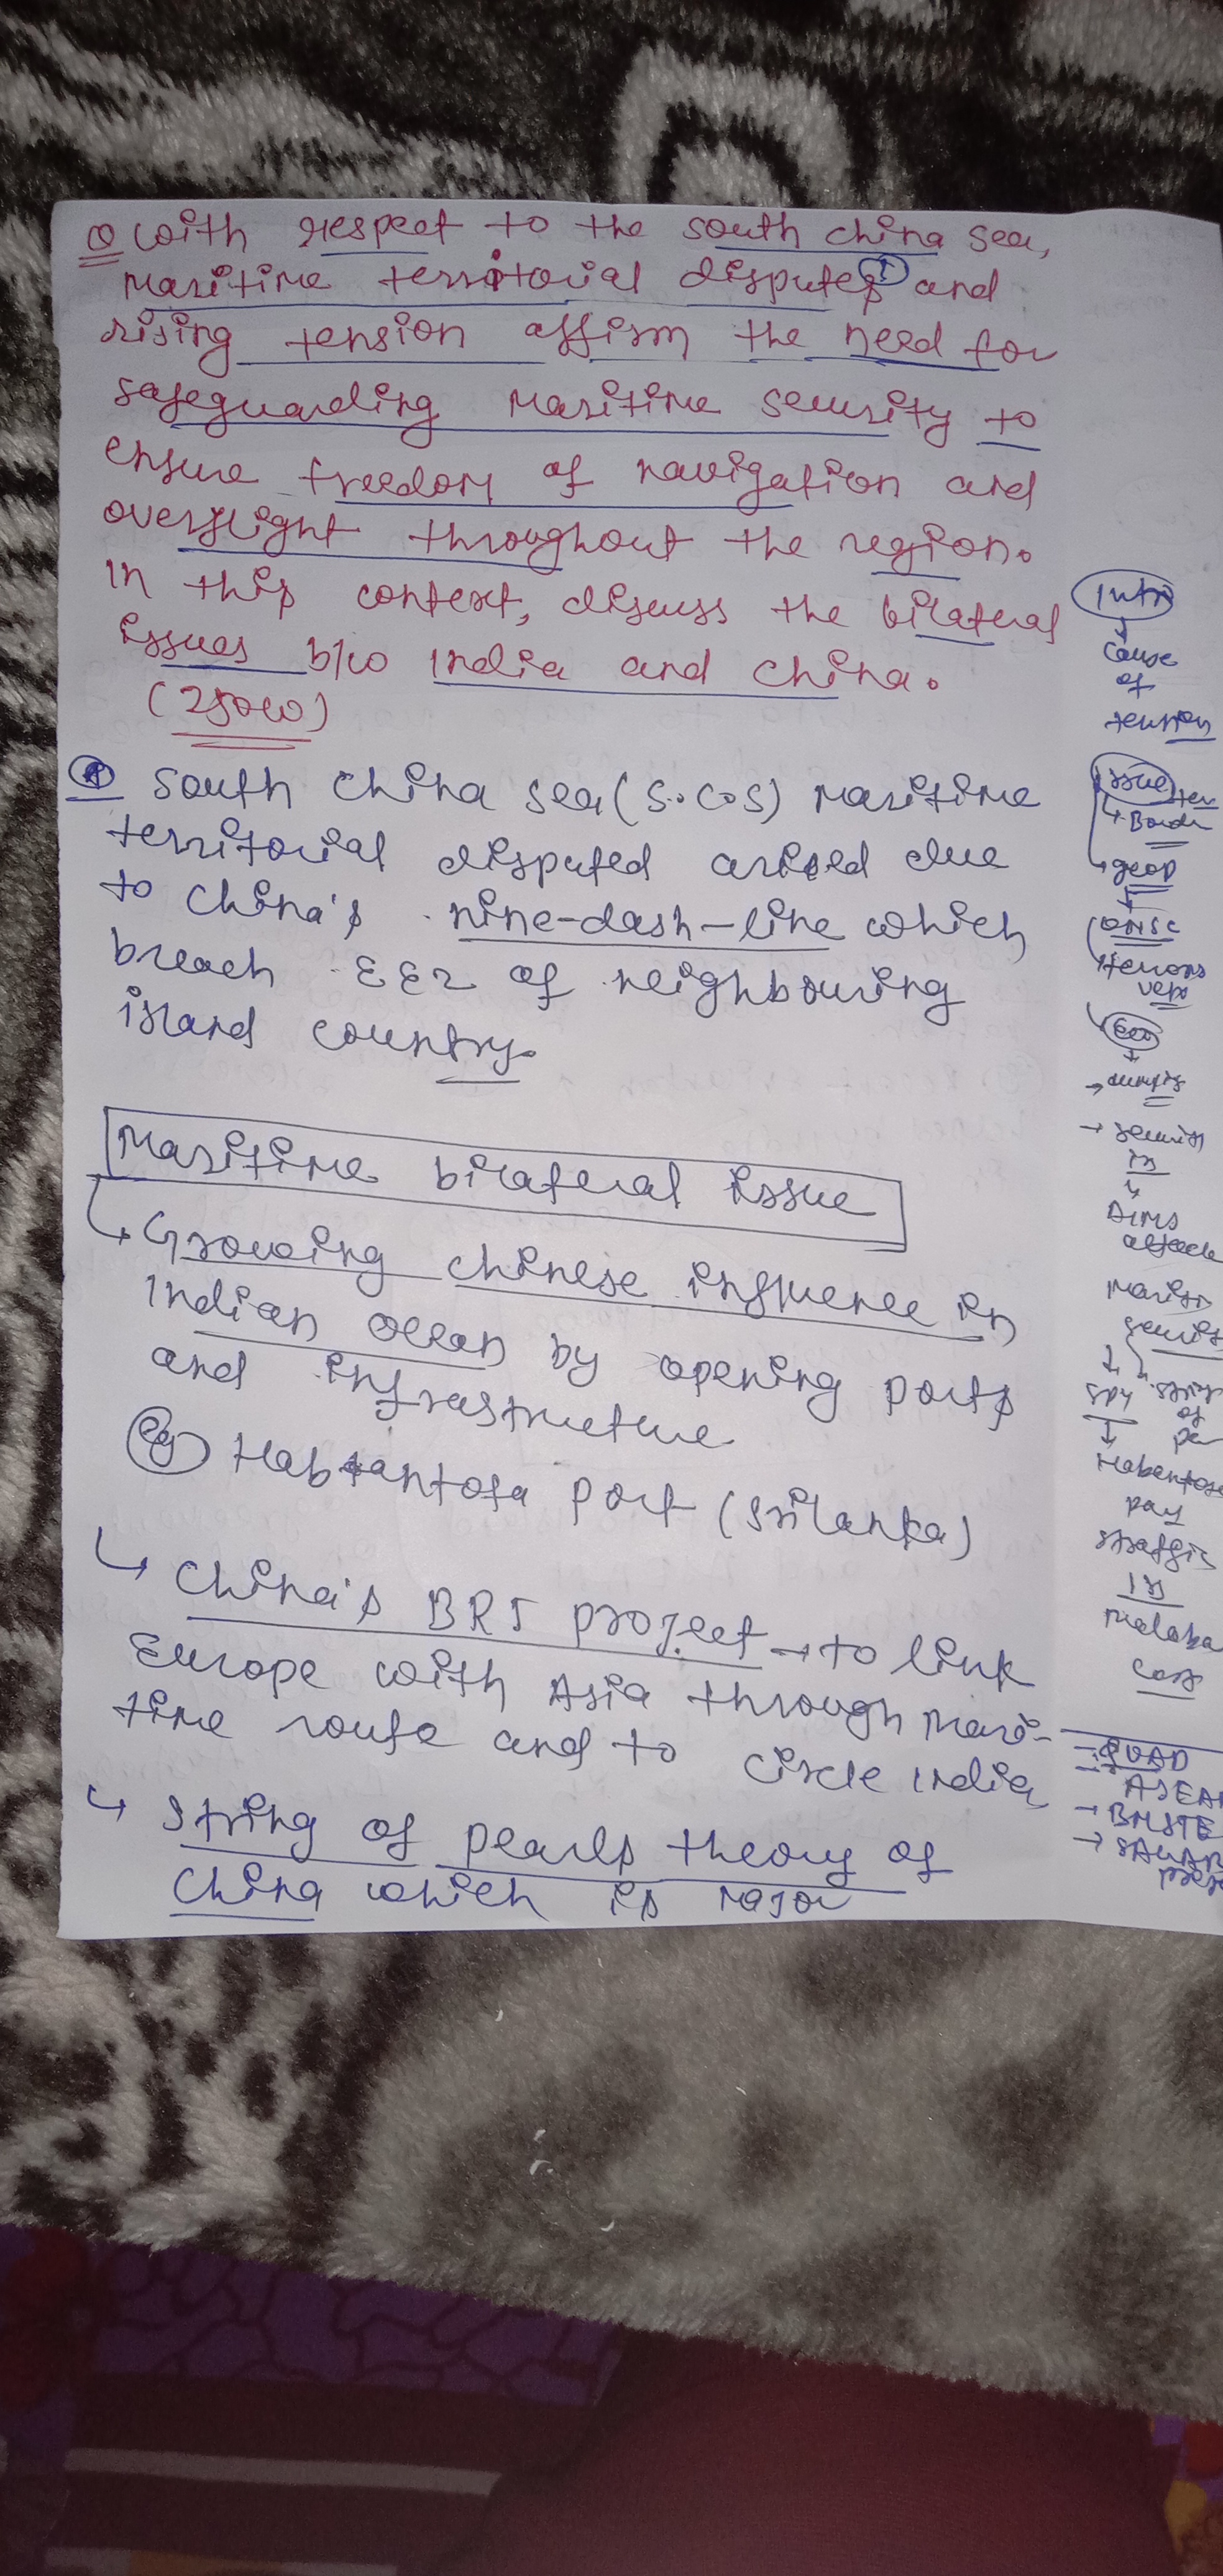 Q with respect to the south china sea,
Maritime territorial disputes and
rising tension affirm the need for
safeguarding Maritime security to
ensure freedom of navigation and
overflight throughout the region.
In this context, discuss the bilateral
issues b/w India and China.
(250w)
A South China Sea (S.C.S) Maritime
territorial disputed arised due
to China's nine-dash-line which
breach EEZ of neighbouring
island country.
Maritime bilateral issue
↳ Growing chinese influence in
Indian Ocean by opening ports
and infrastructure
eg Habantota Port (Srilanka)
↳ China's BRI project → to link
Europe with Asia through Mari-
time route and to circle India
↳ String of pearls theory of
China which is major
Intr
↓
Cause
of
tension
Issue
↳ Borde
→ geop
↓
UNSC
terroris
veto
Eco
↓
→ dumping
→ securit
Is
AIIMS
attack
Mariti
securit
↓
spy
string
of
pe
↓
Habantota
pay
strategic
Is
Malaba
→ QUAD
ASEA
→ BMSTE
→ SAGAR